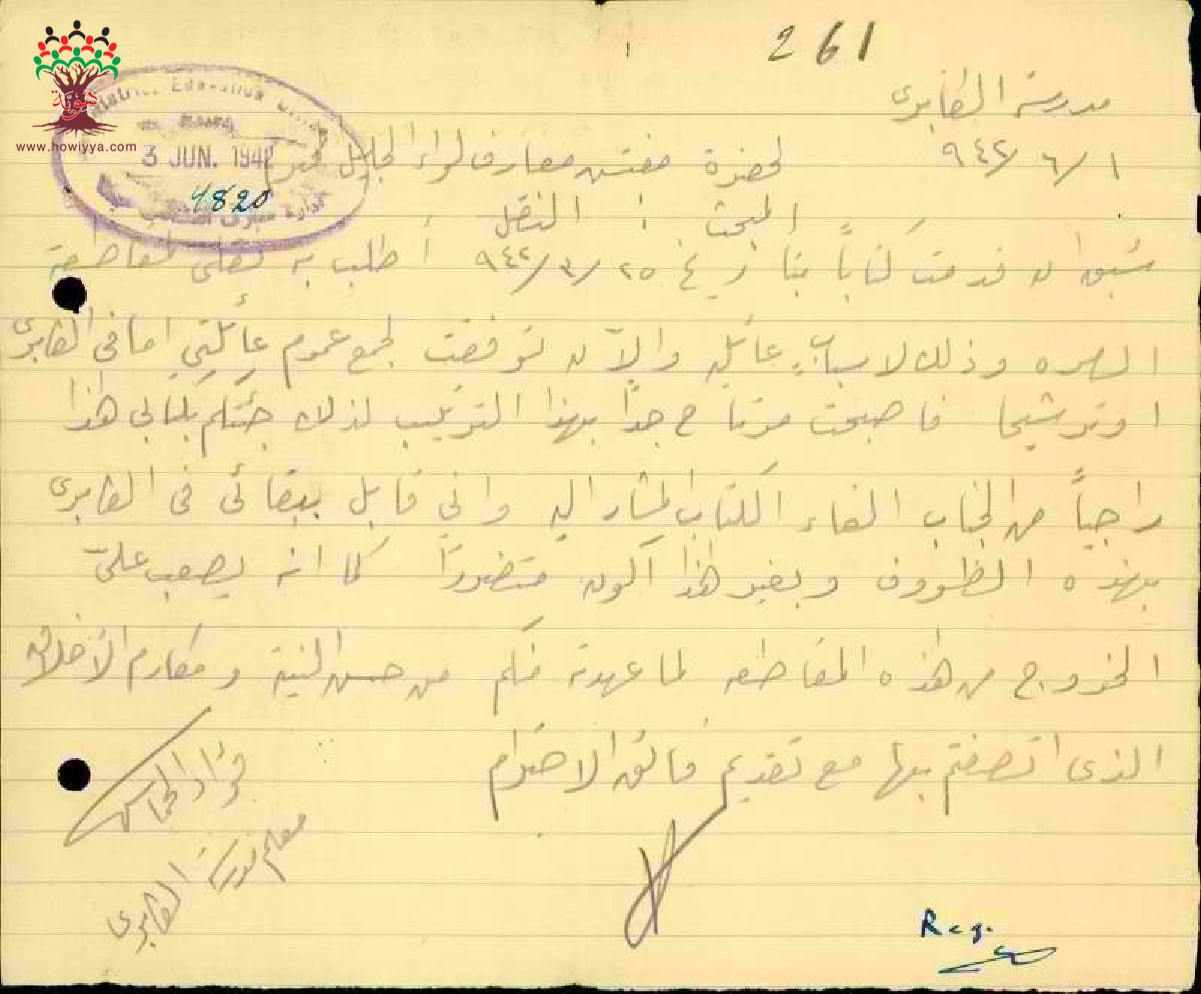 261
مدرسة الكابري
١/٦/٩٤٢
District Education Office
3 JUN. 1942
4820
www.howiyya.com
لحضرة مفتش معارف لواء الجليل المحترم
المبحث : النقل
سبق ان قدمت كتاباً بتاريخ ٢٥/٣/٩٤٢ أطلب به نقلي لمقاطعة
وذلك لاسباب عائلية والآن توفقت لجمع عموم عائلتي اما في الكابري
او ترشيحا فاصبحت مرتاح جداً بهذا الترتيب لذلك جئتكم بكتابي هذا
راجياً من الجناب الغاء الكتاب المشار اليه واني قابل ببقائي في الكابري
بهذه الظروف وبغير هذا أكون متضرراً كما انه يصعب عليّ
الخروج من هذه المقاطعه لما عهدته فيكم من حسن النية ومكارم الأخلاق
الذى اتصفتم بها مع تقديم فائق الاحترام
فؤاد
معلم مدرسة الكابري
Reg.